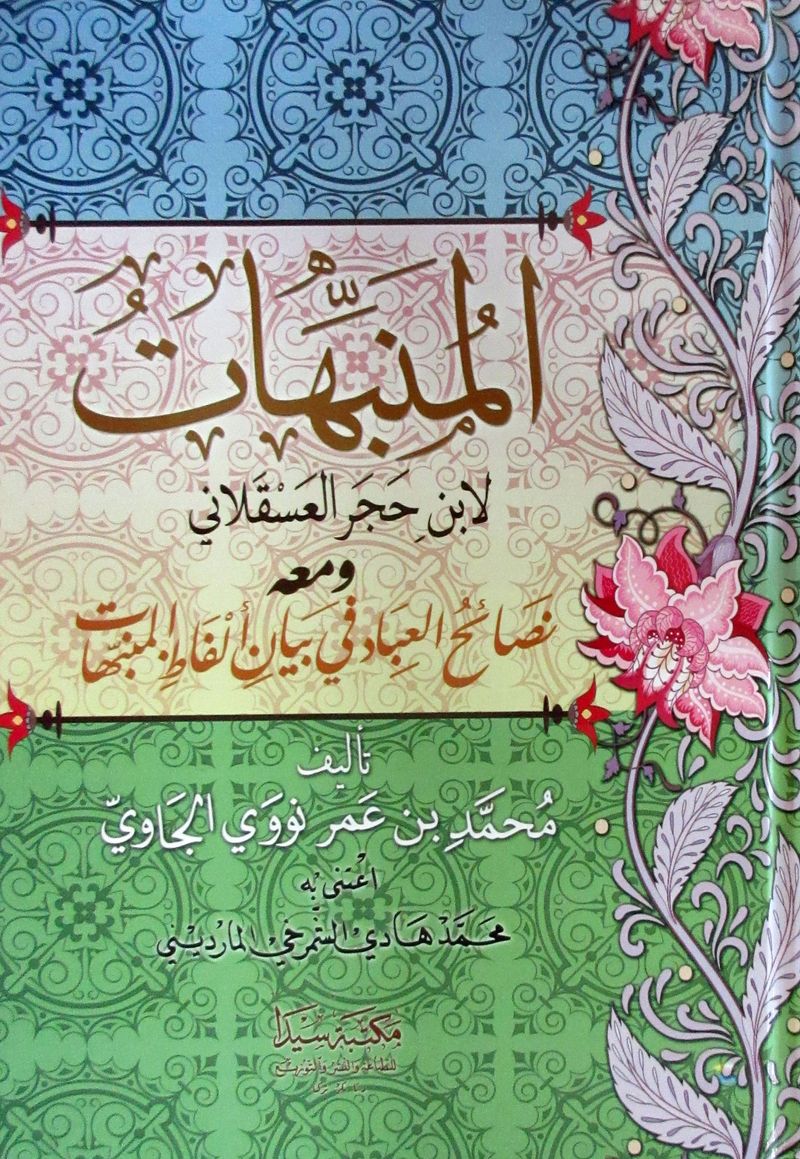 المُنَبِّهَاتُ
لابنِ حَجَر العَسْقَلاني
ومعه
نَصَائحُ العِبَاد في بَيَانِ أَلْفَاظِ المنبّهات
تأليف
مُحمَّدِ بن عَمَر نووَي الجَاويّ
اعْتَنى بِهِ
محَمَّد هَادي الشَّمرخي المارديني
مكتبة سيدا
للطباعة والنشر والتوزيع